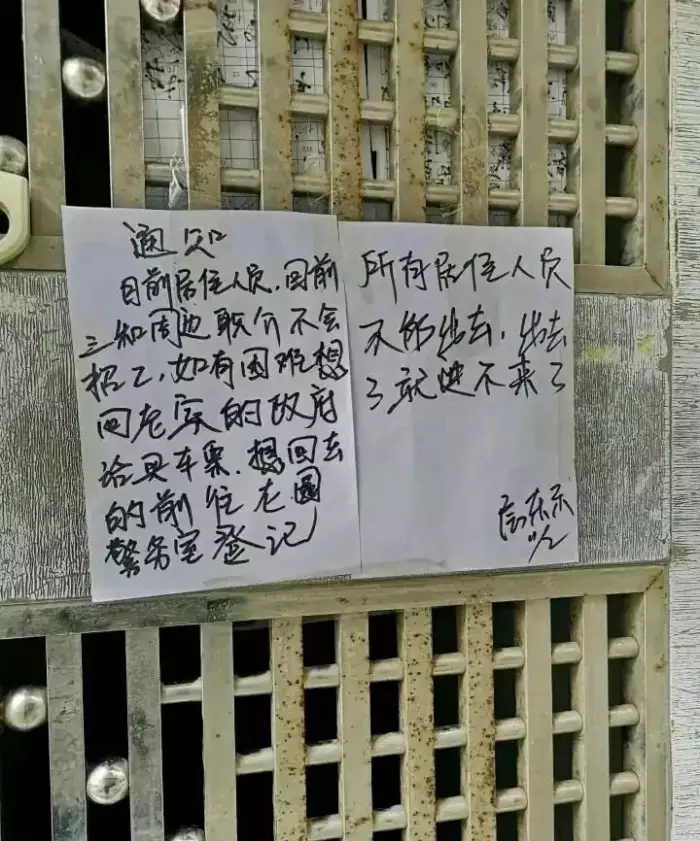 通知
目前居住人员.目前
三和周边职介不会
招工,如有困难想
回老家的政府
给买车票.想回去
的前往老围
警务室登记
所有居住人员
不能出去,出去
了就进不来了
房东示